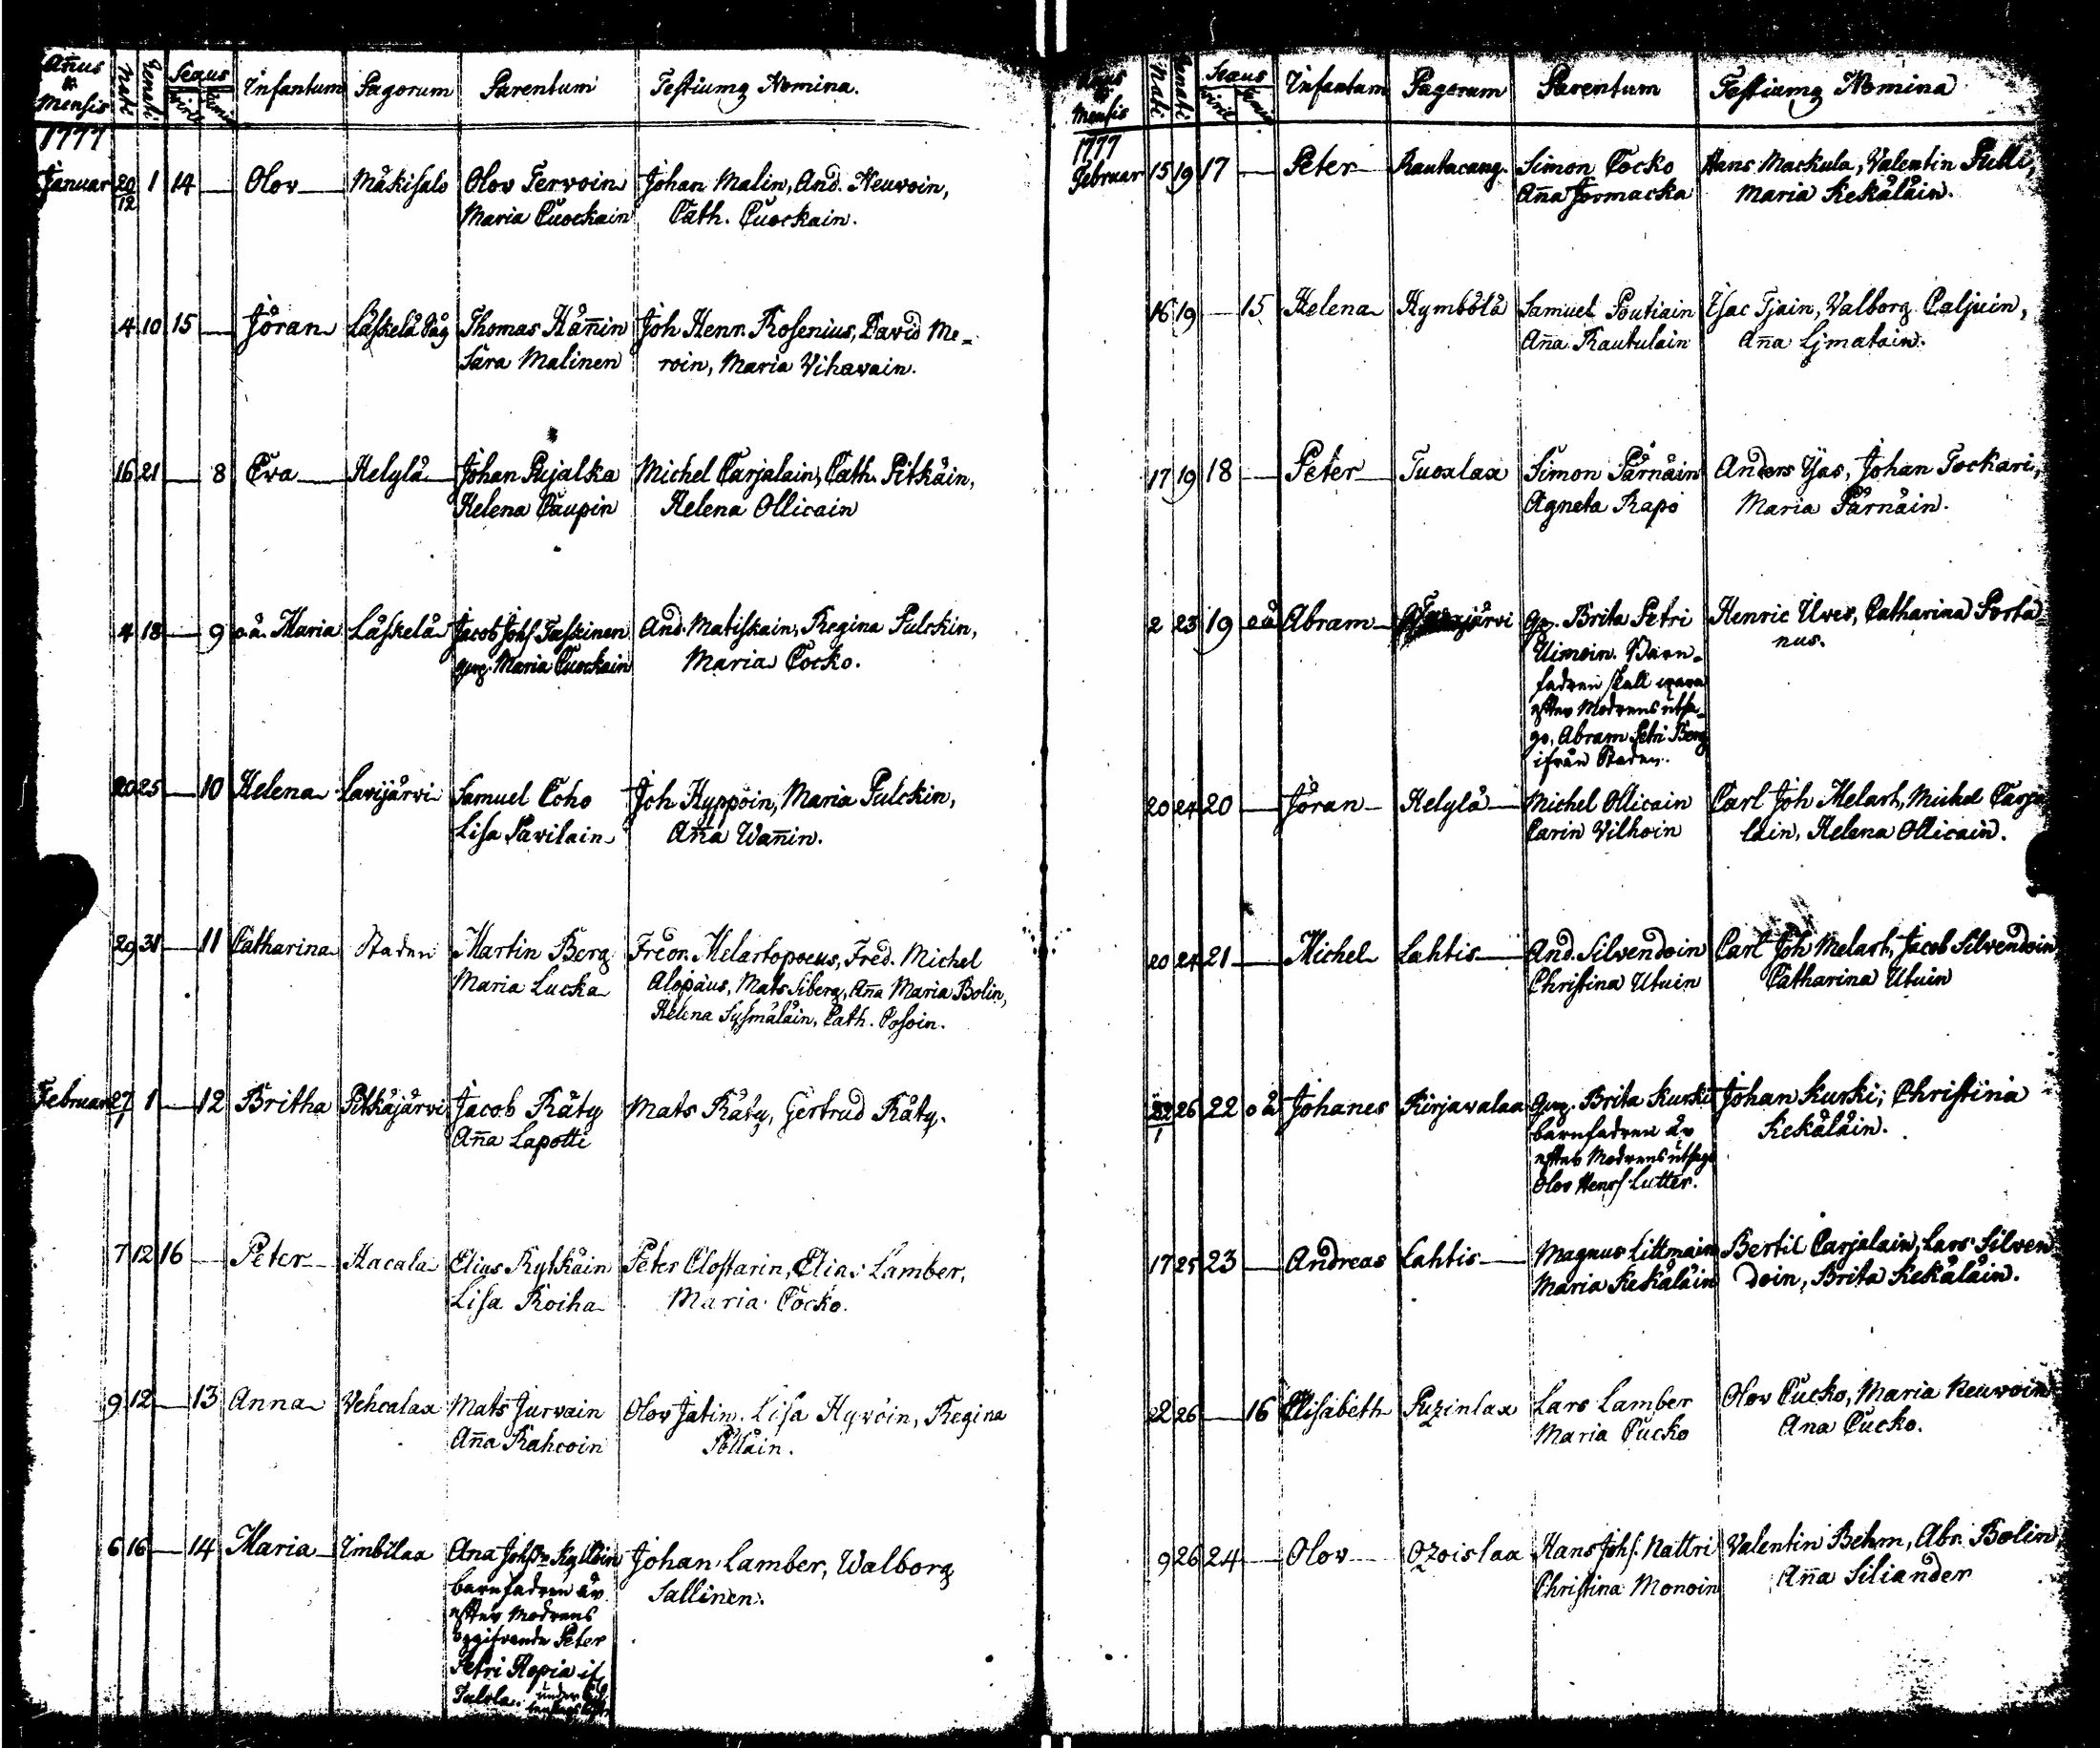 Añus & Mensis Nati Renati Sexus viril. Infantum Pagorum Parentum Testiumq Nomina.
1777
Januar 20/12 1 14 — Olov Mäkisalo Olov Tervoin Johan Malin, And. Neuvoin,
Maria Cuockain Cath. Cuockain.
4 10 15 — Jöran Läskelä Såg Thomas Häñin Joh Henr. Rosenius, David Me-
Sara Malinen roin, Maria Vihavain.
16 21 — 8 Eva Helylä Johan Pujalka Michel Carjalain, Cath. Pitkäin,
Helena Caupin Helena Ollicain
4 18 — 9 o.ä. Maria Läskelä Jacob Johs. Taskinen And. Matiskain, Regina Pulckin,
Maria Cuockain Maria Cocko.
20 25 — 10 Helena Lavijärvi Samuel Coho Joh Hyppöin, Maria Pulckin,
Lisa Pavilain Aña Wañin.
29 31 — 11 Catharina Staden Martin Berg Melartopoeus, Fred. Michel
Maria Lucka Alopäus, Mats Siberg, Aña Maria Bolin,
Helena Sysmäläin, Cath. Cosoin.
Februar 27/1 1 — 12 Britha Pitkäjärvi Jacob Räty Mats Räty, Gertrud Räty.
Aña Lapotti
7 12 16 — Peter Hacala Elias Rytkäin Peter Clostarin, Elias Lamber,
Lisa Roiha Maria Cocko.
9 12 — 13 Anna Vehcalax Mats Jurvain Olov Jatin. Lisa Hyvöin, Regina
Aña Rahcoin Pölläin.
6 16 — 14 Maria Imbilax Ana Johan Lamber, Walborg
barnfadren är Sallinen.
efter Modrens
Peter
Petri
Nati Renati Infantum Pagorum Parentum Testiumq Nomina
Mensis
1777
Februar 15 19 17 — Peter Rautacang. Simon Cocko Hans Mackula, Valentin Pulli,
Aña Jormacka Maria Kekäläin.
16 19 — 15 Helena Hymbölä Samuel Poutiain Isac Tjain, Valborg Caljuin,
Aña Rautulain Aña Ljmatain.
17 19 18 — Peter Tuoxlax Simon Pärnäin Anders Yjas, Johan Tockari,
Agneta Rapo Maria Pärnäin.
2 23 19 o ä Abram Brita Petri Henric Ulves, Catharina Porta
Uimoin. Barn- nus.
fadren skall vara
efter Modrens utsa-
go, Abram Petri Berg
ifrån Staden.
20 24 20 — Jöran Helylä Michel Ollicain Carl Joh Melart, Michel Carja
Carin Vilhoin lain, Helena Ollicain.
20 24 21 — Michel Lahtis And. Silvendoin Carl Joh Melart, Jacob Silvendoin
Christina Utuin Catharina Utuin
26 22 o ä Johanes Kirjavalax Brita Kurki Johan Kurki, Christina
barnfadren är Kekäläin.
efter Modrens utsago
Olov Henrs. Lutter.
17 25 23 — Andreas Lahtis Magnus Littmain Bertil Carjalain, Lars Silven
Maria Kekäläin doin, Brita Kekäläin.
22 26 — 16 Elisabeth Puzinlax Lars Lamber Olov Cucko, Maria Neuvoin
Maria Cucko Ana Cucko.
9 26 24 — Olov Ozoislax Hans Johs. Nattri Valentin Behm, Abr. Bolin,
Christina Monoin Aña Siliander